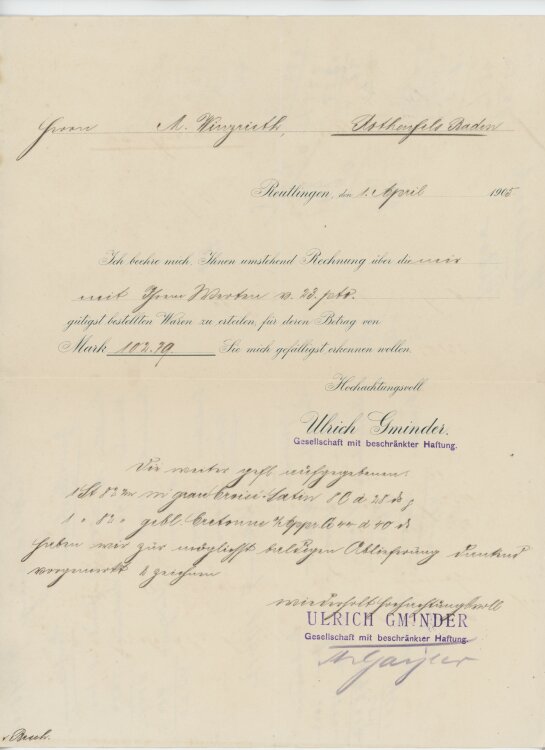 Herrn M. Wingrieth, Rothenfels Baden
Reutlingen, den 1. April 1905
Ich beehre mich, Ihnen umstehend Rechnung über die mir
mit Ihrem Werten v. 23. pto.
gütigst bestellten Waren zu erteilen, für deren Betrag von
Mark 102.79 Sie mich gefälligst erkennen wollen.
Hochachtungsvoll
Ulrich Gminder.
Gesellschaft mit beschränkter Haftung.
Die weiter gefl. aufgegebenen:
1 St 82 grau Croisé-Satin 80 a 28
1 " 82 " gebl. Cretonne a 40
haben wir zur möglichst baldigen Ablieferung dankend
vorgemerkt & zeichnen
wiederholt hochachtungsvoll
ULRICH GMINDER
Gesellschaft mit beschränkter Haftung.